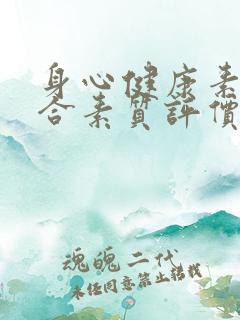 身心健康素
合素質評價
魂魄二代
未经同意禁止转载